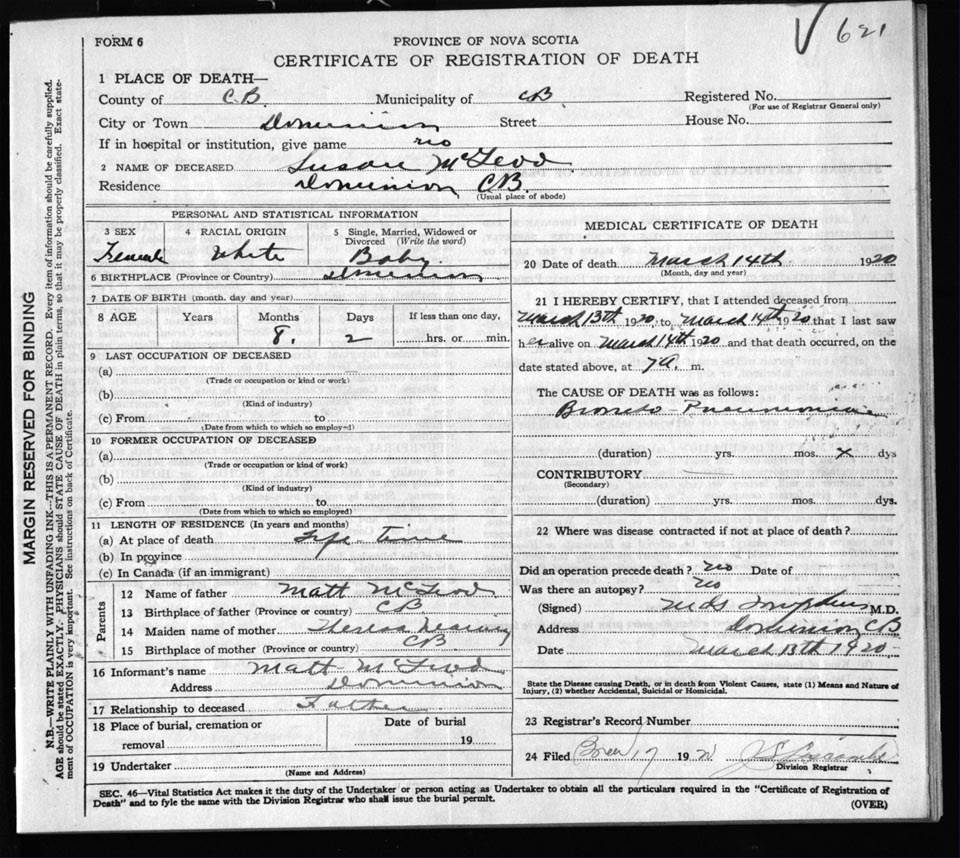 FORM 6
PROVINCE OF NOVA SCOTIA
V 621
CERTIFICATE OF REGISTRATION OF DEATH
1 PLACE OF DEATH—
County of C.B. Municipality of CB Registered No.
(For use of Registrar General only)
City or Town Dominion Street House No.
If in hospital or institution, give name no
2 NAME OF DECEASED Susan McLeod
Residence Dominion CB.
(Usual place of abode)
PERSONAL AND STATISTICAL INFORMATION
3 SEX 4 RACIAL ORIGIN 5 Single, Married, Widowed or
Divorced (Write the word)
Female White Baby
6 BIRTHPLACE (Province or Country) Dominion
7 DATE OF BIRTH (month, day and year)
8 AGE Years Months Days If less than one day,
8. 2 hrs. or min.
9 LAST OCCUPATION OF DECEASED
(a)
(Trade or occupation or kind or work)
(b)
(Kind of industry)
(c) From to
(Date from which to which so employed)
10 FORMER OCCUPATION OF DECEASED
(a)
(Trade or occupation or kind of work)
(b)
(Kind of industry)
(c) From to
(Date from which to which so employed)
11 LENGTH OF RESIDENCE (In years and months)
(a) At place of death Life time
(b) In province
(c) In Canada (if an immigrant)
Parents
12 Name of father Matt McLeod
13 Birthplace of father (Province or country) CB
14 Maiden name of mother Theresa
15 Birthplace of mother (Province or country) CB
16 Informant's name Matt McLeod
Address Dominion
17 Relationship to deceased Father
18 Place of burial, cremation or Date of burial
removal 19
19 Undertaker
(Name and Address)
MEDICAL CERTIFICATE OF DEATH
20 Date of death March 14th 1920
(Month, day and year)
21 I HEREBY CERTIFY, that I attended deceased from
March 13th 1920, to March 14th 1920 that I last saw
her alive on March 14th 1920 and that death occurred, on the
date stated above, at 7 a. m.
The CAUSE OF DEATH was as follows:
Broncho Pneumonia
(duration) yrs. mos. x dys
CONTRIBUTORY
(Secondary)
(duration) yrs. mos. dys.
22 Where was disease contracted if not at place of death?
Did an operation precede death? no Date of
Was there an autopsy? no
(Signed) M.D.
Address Dominion CB
Date March 13th 1920
State the Disease causing Death, or in death from Violent Causes, state (1) Means and Nature of
Injury, (2) whether Accidental, Suicidal or Homicidal.
23 Registrar's Record Number
24 Filed 17 1920
Division Registrar
SEC. 46—Vital Statistics Act makes it the duty of the Undertaker or person acting as Undertaker to obtain all the particulars required in the "Certificate of Registration of
Death" and to fyle the same with the Division Registrar who shall issue the burial permit.
(OVER)
MARGIN RESERVED FOR BINDING
N.B.—WRITE PLAINLY WITH UNFADING INK—THIS IS A PERMANENT RECORD. Every item of information should be carefully supplied.
AGE should be stated EXACTLY. PHYSICIANS should STATE CAUSE OF DEATH in plain terms, so that it may be properly classified. Exact state-
ment of OCCUPATION is very important. See instructions on back of Certificate.